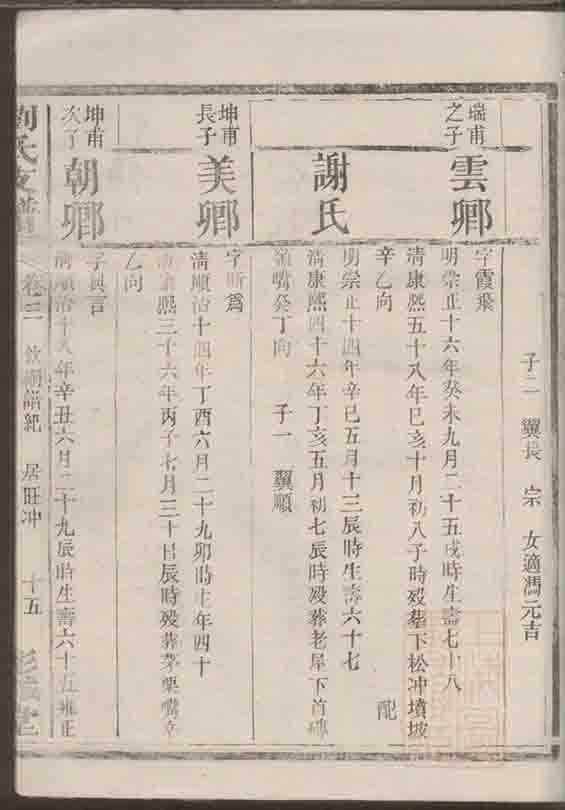 子二　翼長　宗　女適馮元吉
瑞甫之子
雲卿
字霞飛
明崇正十六年癸未九月二十五戌時生壽七十八
清康熙五十八年己亥十月初八子時殁葬下松冲墳坡
辛乙向　配
謝氏
明崇正十四年辛巳五月十三辰時生壽六十七
清康熙四十六年丁亥五月初七辰時殁葬老屋下首
嘴癸丁向　子一　翼順
坤甫長子
美卿
字
清順治十四年丁酉六月二十九卯時生年四十
清康熙三十六年丙子七月三十日辰時殁葬茅栗嘴辛
乙向
坤甫次子
朝卿
字與言
清順治十八年辛丑六月二十九辰時生壽六十五雍正
劉氏支譜　卷三　居旺冲　十五　堂